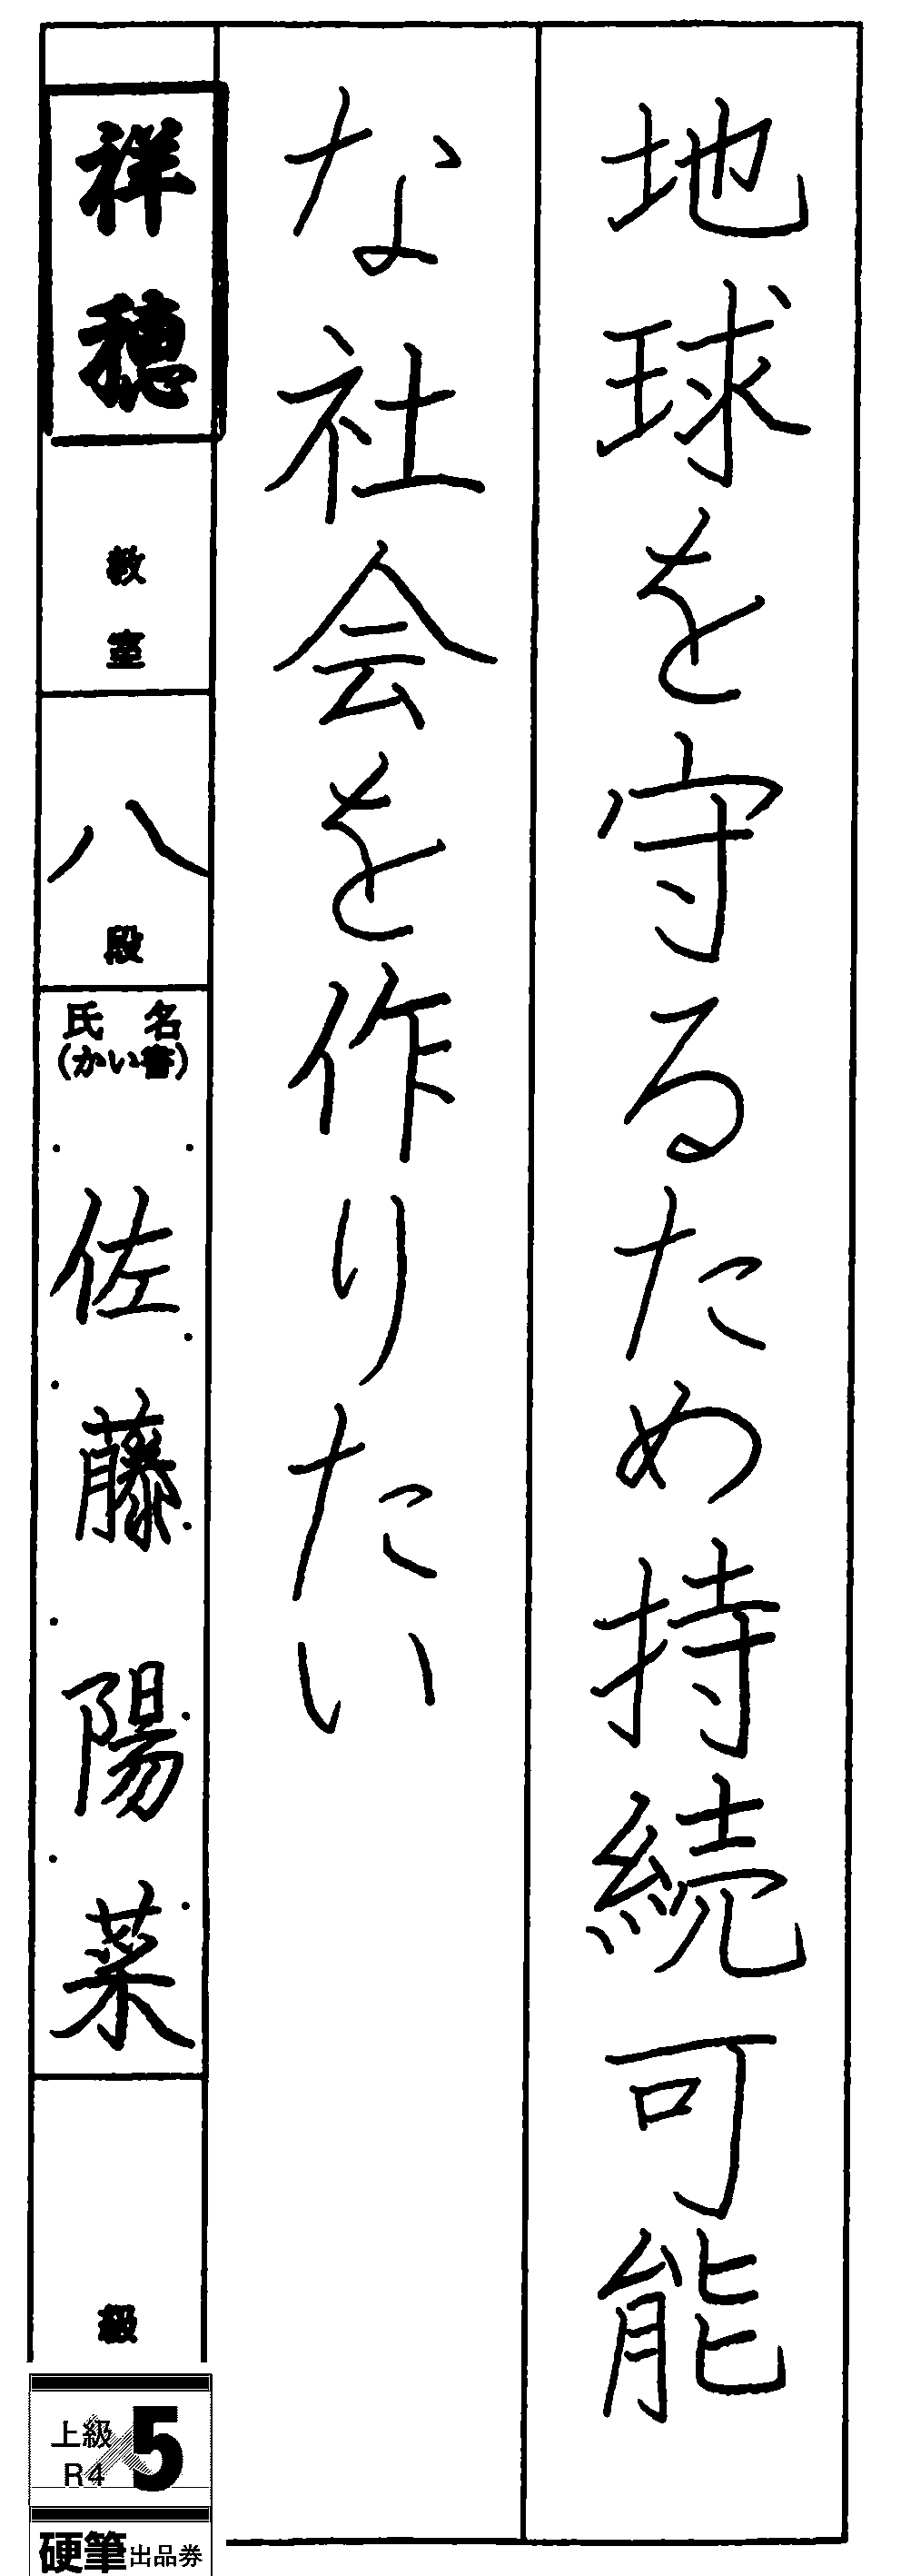 地球を守るため持続可能
な社会を作りたい
祥穂
教室
八
段
氏名
(かい書)
佐藤陽菜
級
上級
R4
5
硬筆出品券